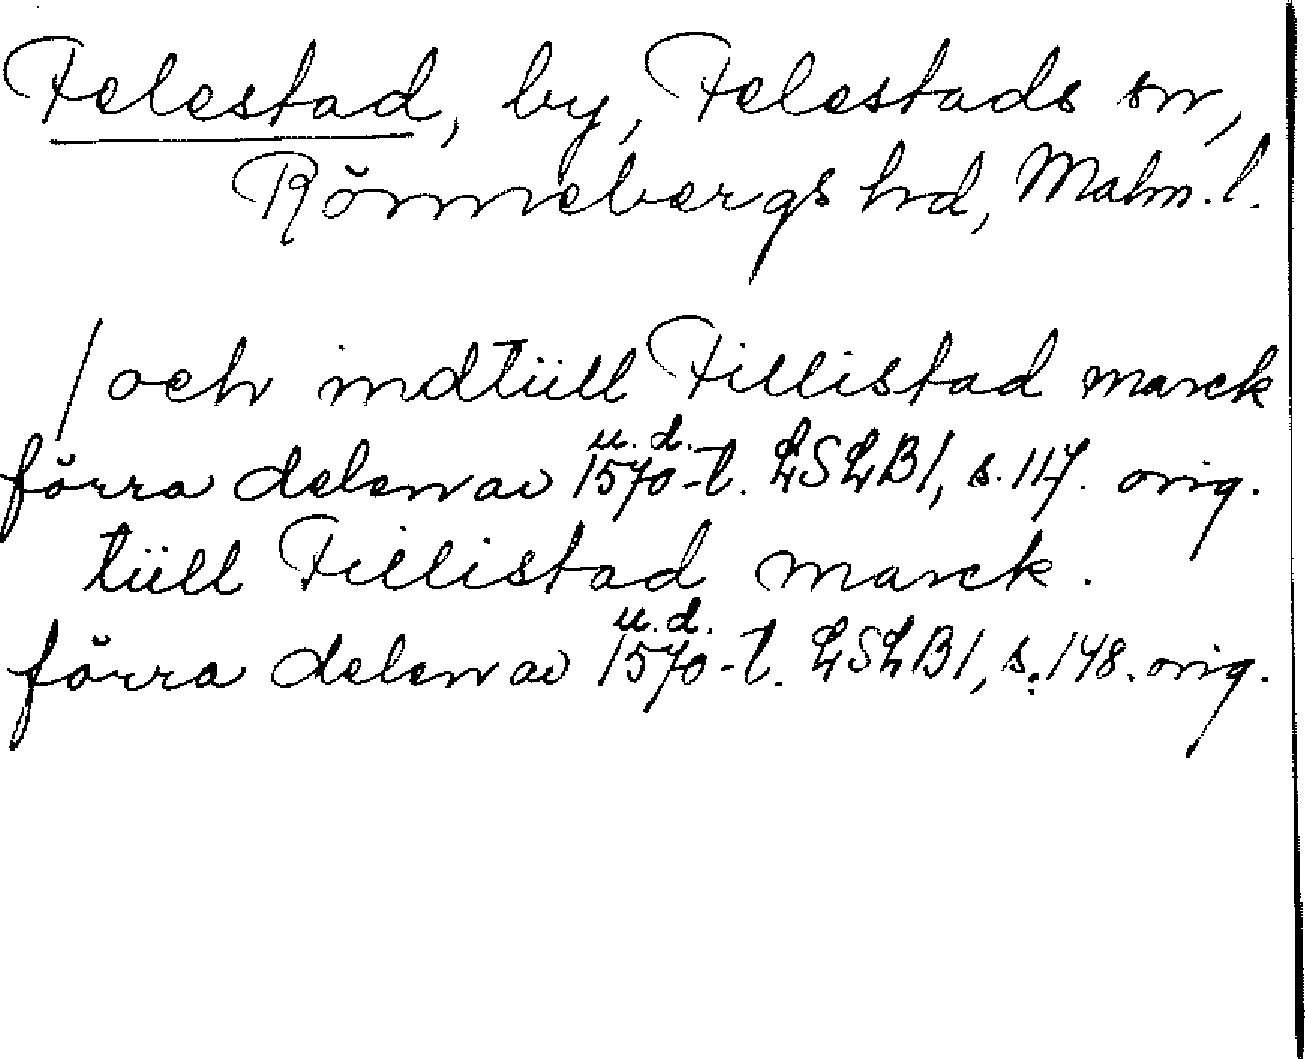 Felestad, by, Felestads sn,
Rönnebergs hd, Malm. l.
/ och indtüll Fillistad marck
förra delen av 1570-t. u.d. LSLB1, s. 117. orig.
tüll Fillistad marck.
förra delen av 1570-t. u.d. LSLB1, s. 148. orig.